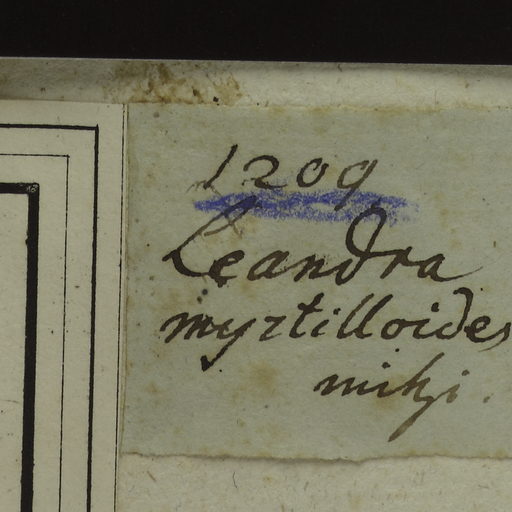 1209
Leandra
myrtilloides
mihi.